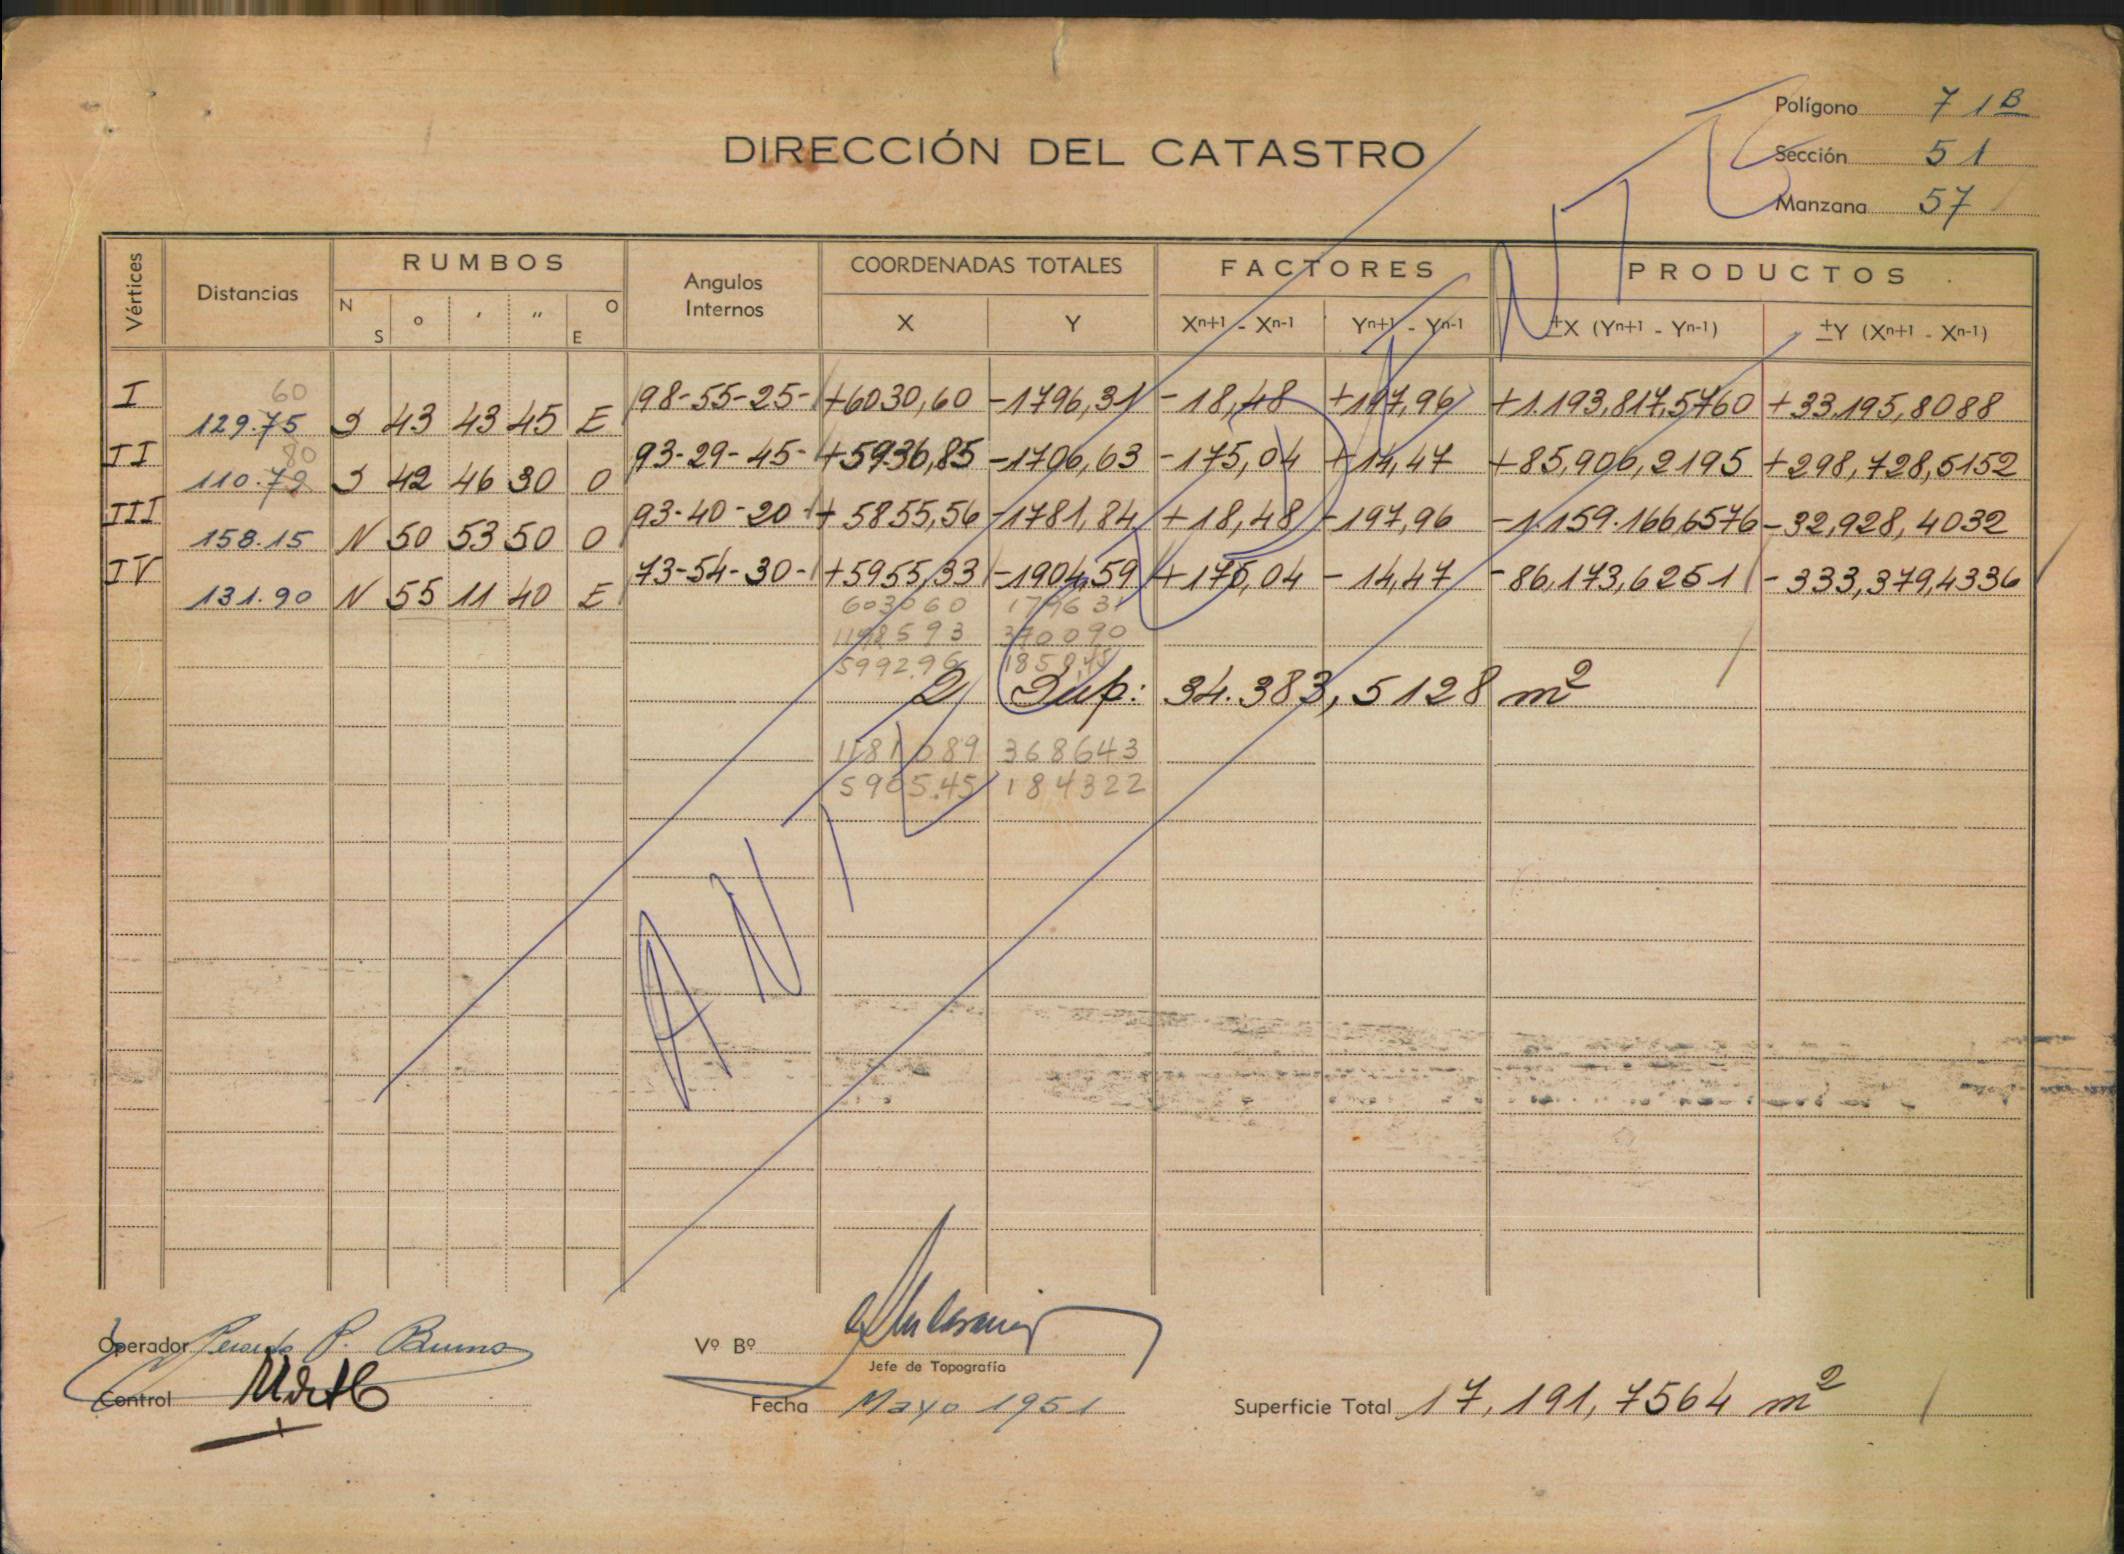 Polígono 71B
DIRECCIÓN DEL CATASTRO
Sección 51
Manzana 57
Vértices Distancias RUMBOS N S o ' " O E Angulos Internos COORDENADAS TOTALES X Y FACTORES Xn+1 - Xn-1 Yn+1 - Yn-1 PRODUCTOS ±X (Yn+1 - Yn-1) ±Y (Xn+1 - Xn-1)
60
I 98-55-25- +6030,60 -1796,31 -18,48 +197,96 +1.193,817,5760 +33.195,8088
129.75 S 43 43 45 E
80
II 93-29-45- +5936,85 -1706,63 -175,04 +14,47 +85,906,2195 +298,728,5152
110.79 S 42 46 30 O
III 93-40-20- +5855,56 -1781,84 +18,48 -197,96 -1.159.166,6576 -32,928,4032
158.15 N 50 53 50 O
IV 73-54-30- +5955,33 -1904,59 +175,04 -14,47 -86,173,6251 -333,379,4336
131.90 N 55 11 40 E
603060 179631
1198593 370090
599296 185045
2 Sup: 34.383,5128 m²
368643
5905.45 184322
Operador P. Bruno
Vº Bº
Jefe de Topografía
Control
Fecha Mayo 1951
Superficie Total 17,191,7564 m²